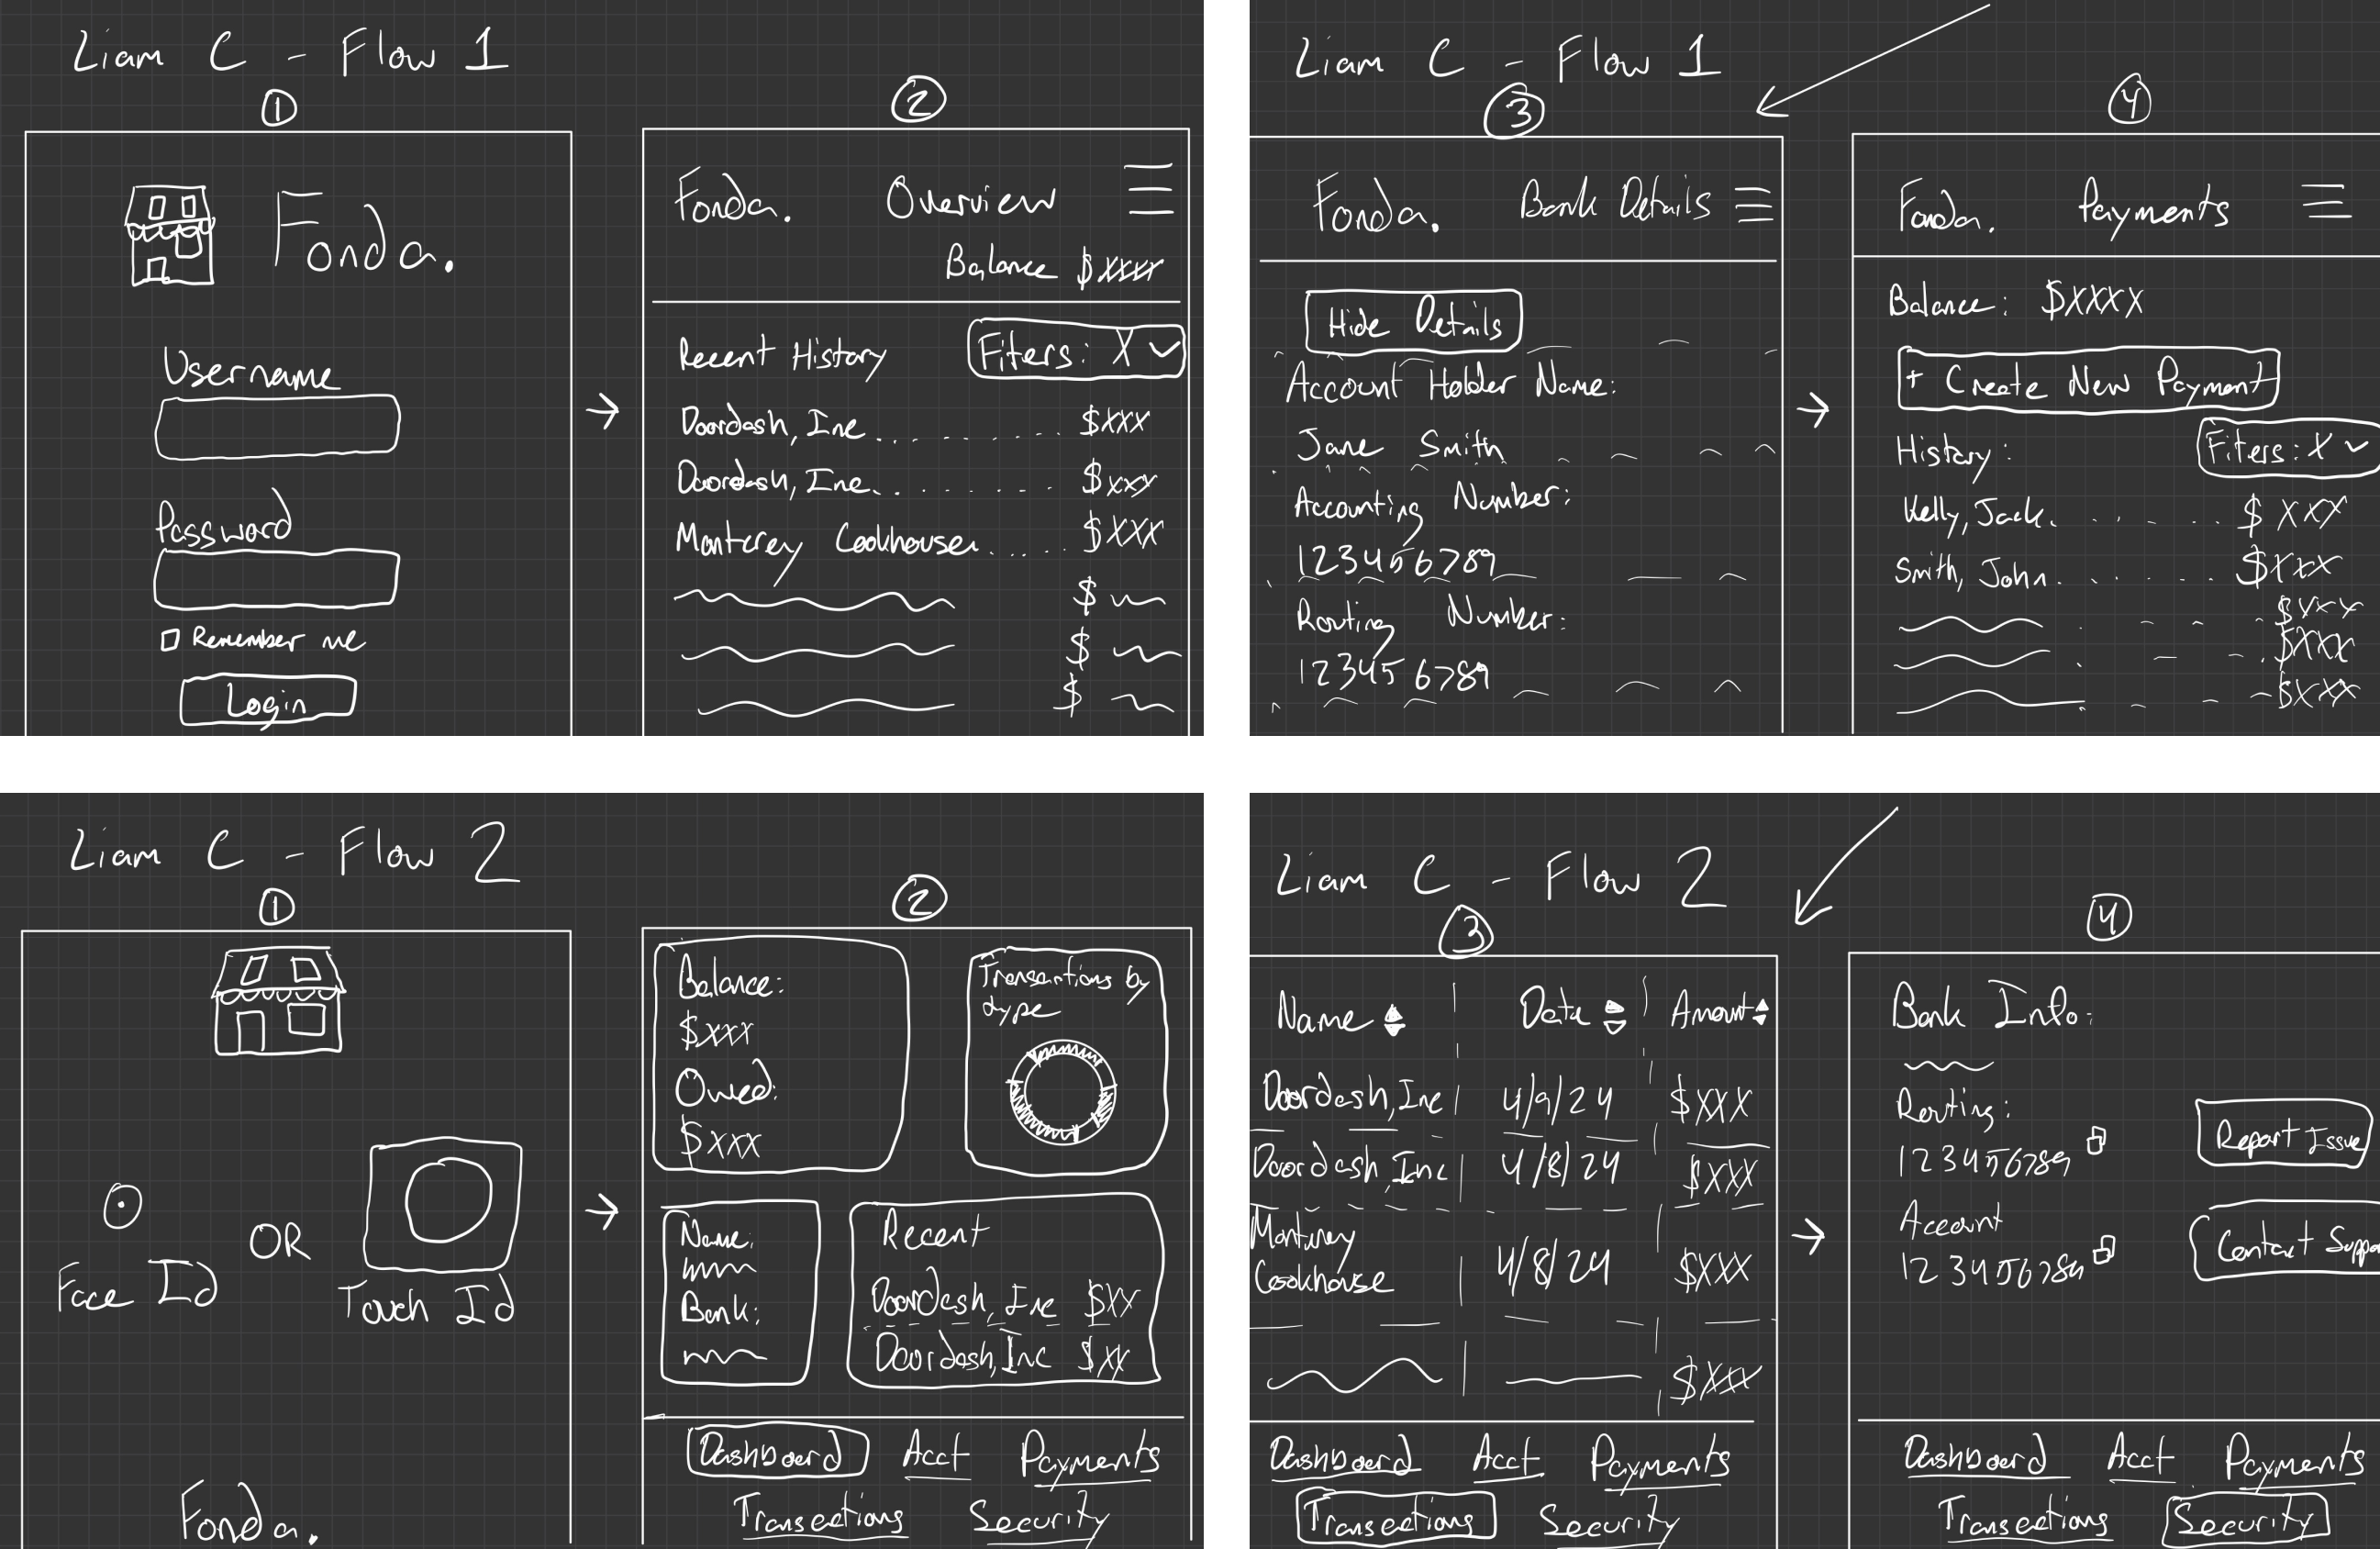 Liam C - Flow 1
1
Fonda.
Username
Password
Remember me
Login
2
Fonda. Overview
Balance $xxxx
Recent History Filters: X
Doordash, Inc. $xxx
Doordash, Inc. $xxy
Monterey Cookhouse $XXX
$
$
$
Liam C - Flow 1
3
Fonda. Bank Details
Hide Details
Account Holder Name:
Jane Smith
Accounting Number:
123456789
Routing Number:
123456789
4
Fonda. Payments
Balance: $XXXX
+ Create New Payment
History: Filters: X
Kelly, Jack. $ XXX
Smith, John. $XXX
$XXX
$XXX
$XXX
Liam C - Flow 2
1
Face Id
OR
Touch Id
Fonda.
2
Balance:
$xxx
Owed:
$xxx
Transactions by
type
Name:
Bank:
Recent
Doordash, Inc $XX
Doordash, Inc $XX
Dashboard Acct Payments
Transactions Security
Liam C - Flow 2
3
Name Date Amount
Doordash, Inc 4/9/24 $XXX
Doordash, Inc 4/8/24 $XXX
Monterey
Cookhouse 4/8/24 $XXX
$XXX
Dashboard Acct Payments
Transactions Security
4
Bank Info:
Routing:
123456789
Account
123456789
Report Issue
Contact Suppo
Dashboard Acct Payments
Transactions Security